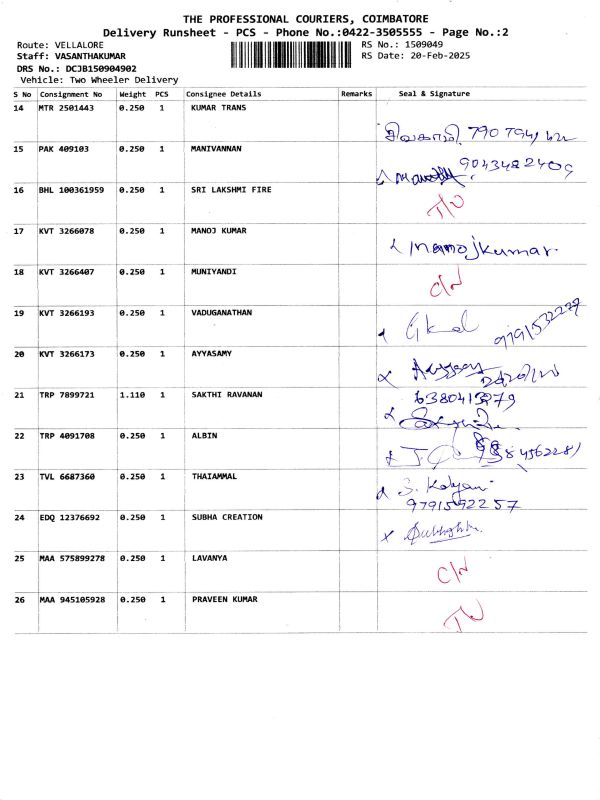 THE PROFESSIONAL COURIERS, COIMBATORE
Delivery Runsheet - PCS - Phone No.:0422-3505555 - Page No.:2
Route: VELLALORE RS No.: 1509049
Staff: VASANTHAKUMAR RS Date: 20-Feb-2025
DRS No.: DCJB150904902
Vehicle: Two Wheeler Delivery
S No Consignment No Weight PCS Consignee Details Remarks Seal & Signature
14 MTR 2501443 0.250 1 KUMAR TRANS
சிவகாமி 790 794
15 PAK 409103 0.250 1 MANIVANNAN 9043482409
16 BHL 100361959 0.250 1 SRI LAKSHMI FIRE
17 KVT 3266078 0.250 1 MANOJ KUMAR manojkumar
18 KVT 3266407 0.250 1 MUNIYANDI C/N
19 KVT 3266193 0.250 1 VADUGANATHAN 9791532277
20 KVT 3266173 0.250 1 AYYASAMY
21 TRP 7899721 1.110 1 SAKTHI RAVANAN 6380413279
22 TRP 4091708 0.250 1 ALBIN
23 TVL 6687360 0.250 1 THAIAMMAL S. Kalyani
9791592257
24 EDQ 12376692 0.250 1 SUBHA CREATION
25 MAA 575899278 0.250 1 LAVANYA C/N
26 MAA 945105928 0.250 1 PRAVEEN KUMAR